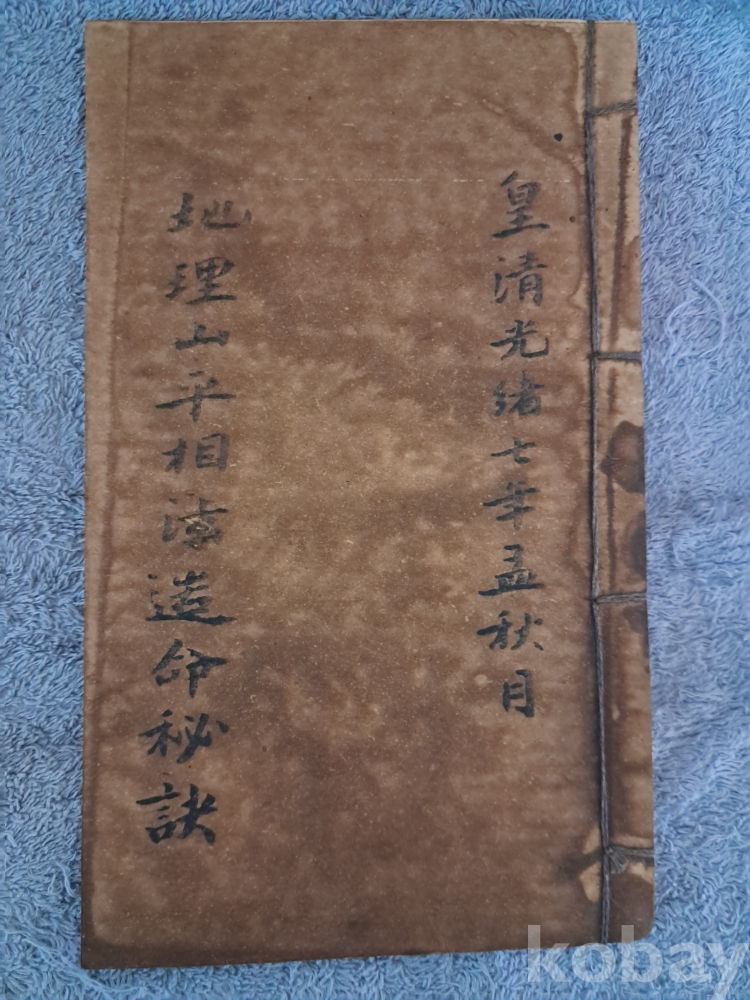 皇清光緒七年孟秋月
地理山平相法造命秘訣
kobay